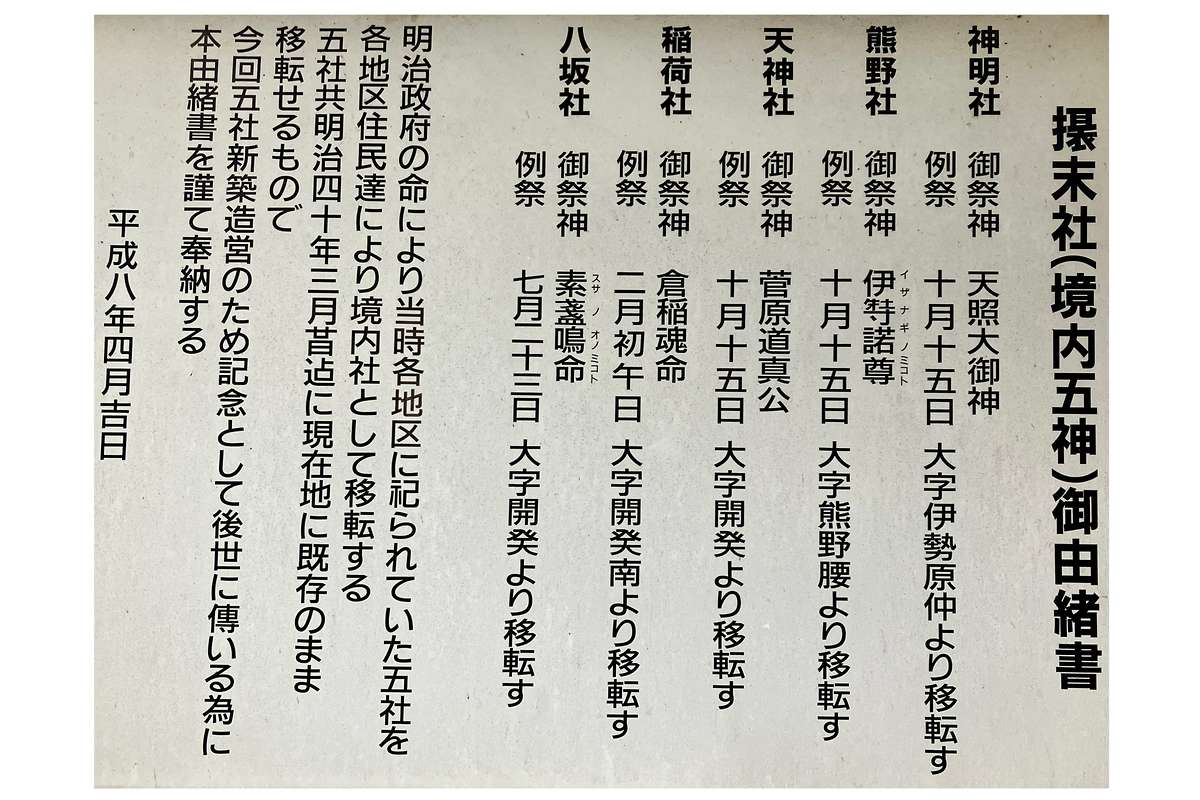 摄末社(境内五神)御由緒書
神明社 御祭神 天照大御神
例祭 十月十五日 大字伊勢原仲より移転す
熊野社 御祭神 伊弉諾尊
イザナギノミコト
例祭 十月十五日 大字熊野腰より移転す
天神社 御祭神 菅原道真公
例祭 十月十五日 大字開発より移転す
稲荷社 御祭神 倉稲魂命
例祭 二月初午日 大字開発南より移転す
八坂社 御祭神 素盞鳴命
スサノオノミコト
例祭 七月二十三日 大字開発より移転す
明治政府の命により当時各地区に祀られていた五社を
各地区住民達により境内社として移転する
五社共明治四十年三月迠に現在地に既存のまま
移転せるもので
今回五社新築造営のため記念として後世に傳いる為に
本由緒書を謹て奉納する
平成八年四月吉日